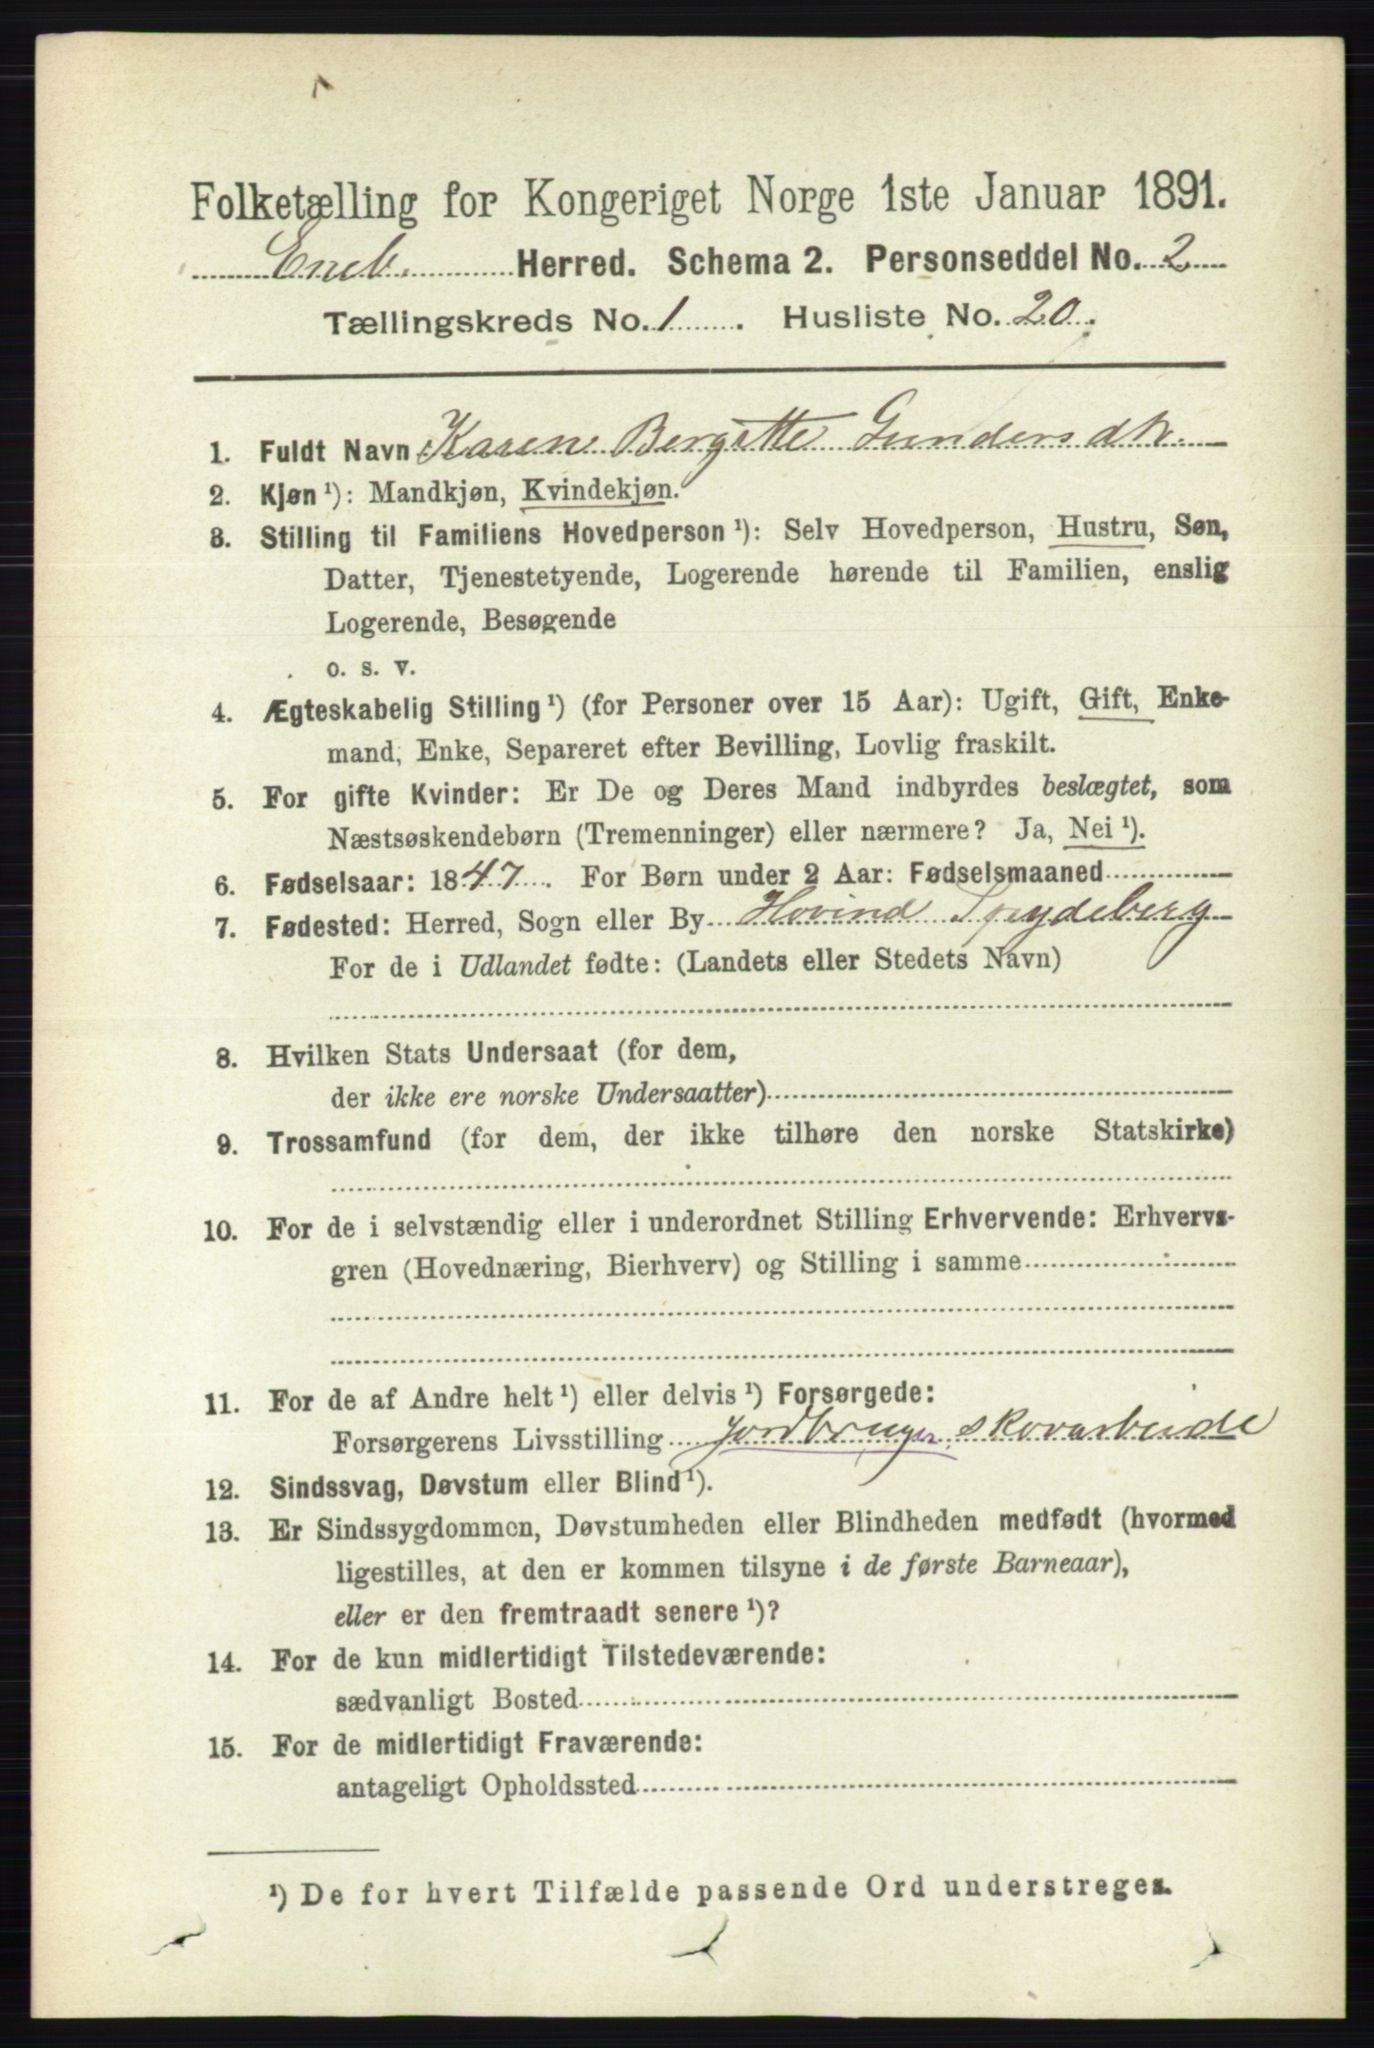 Folketælling for Kongeriget Norge 1ste Januar 1891.
Eneb. Herred. Schema 2. Personseddel No. 2
Tællingskreds No. 1. Husliste No. 20.
1. Fuldt Navn Karen Bergitte Gundersdtr.
2. Kjøn ¹): Mandkjøn, Kvindekjøn.
3. Stilling til Familiens Hovedperson ¹): Selv Hovedperson, Hustru, Søn,
Datter, Tjenestetyende, Logerende hørende til Familien, enslig
Logerende, Besøgende
o. s. v.
4. Ægteskabelig Stilling ¹) (for Personer over 15 Aar): Ugift, Gift, Enke-
mand, Enke, Separeret efter Bevilling, Lovlig fraskilt.
5. For gifte Kvinder: Er De og Deres Mand indbyrdes beslægtet, som
Næstsøskendebørn (Tremenninger) eller nærmere? Ja, Nei ¹).
6. Fødselsaar: 1847. For Børn under 2 Aar: Fødselsmaaned
7. Fødested: Herred, Sogn eller By Hovind Spydeberg
For de i Udlandet fødte: (Landets eller Stedets Navn)
8. Hvilken Stats Undersaat (for dem,
der ikke ere norske Undersaatter)
9. Trossamfund (for dem, der ikke tilhøre den norske Statskirke)
10. For de i selvstændig eller i underordnet Stilling Erhvervende: Erhvervs-
gren (Hovednæring, Bierhverv) og Stilling i samme
11. For de af Andre helt ¹) eller delvis ¹) Forsørgede:
Forsørgerens Livsstilling Jordbruger, skovarbeide
12. Sindssvag, Døvstum eller Blind ¹).
13. Er Sindssygdommen, Døvstumheden eller Blindheden medfødt (hvormed
ligestilles, at den er kommen tilsyne i de første Barneaar),
eller er den fremtraadt senere ¹)?
14. For de kun midlertidigt Tilstedeværende:
sædvanligt Bosted
15. For de midlertidigt Fraværende:
antageligt Opholdssted
¹) De for hvert Tilfælde passende Ord understreges.